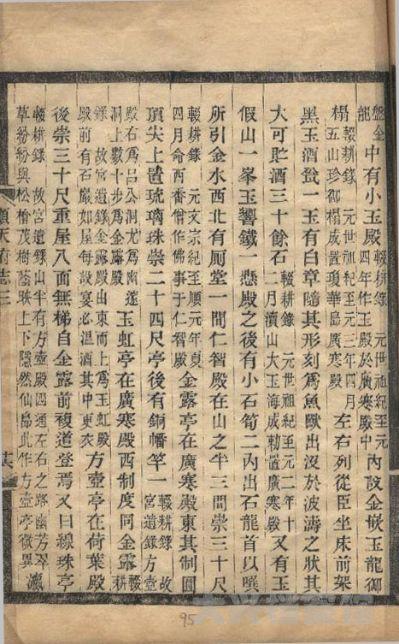 盤金
龍
中有小玉殿
輟耕錄 元世祖紀至元
四年作玉殿於廣寒殿中
內設金嵌玉龍御
榻
輟耕錄 元世祖紀至元三年四月
五山珍御榻成置瓊華島廣寒殿
左右列從臣坐床前架
黑玉酒瓮一玉有白章隨其形刻爲魚獸出沒於波濤之狀其
大可貯酒三十餘石
輟耕錄 元世祖紀至元二年十
二月瀆山大玉海成勅置廣寒殿
又有玉
假山一峯玉響鐵一懸殿之後有小石筍二內出石龍首以噀
所引金水西北有厠堂一間仁智殿在山之半三間崇三十尺
輟耕錄 元文宗紀至順元年夏
四月命西番僧作佛事于仁智殿
金露亭在廣寒殿東其制圓
頂尖上置琉璃珠崇二十四尺亭後有銅幡竿一
輟耕錄 故
宮遺錄方壺
殿右爲呂公洞尤爲幽邃
洞上數十步爲金露殿
玉虹亭在廣寒殿西制度同金露
輟耕
錄 故宮遺錄金露殿由東而上爲玉虹殿
殿前有石巖如屋每設宴必溫酒其中更衣
方壺亭在荷葉殿
後崇三十尺重屋八面無梯自金露前複道登焉又曰線珠亭
輟耕錄 故宮遺錄山半有方壺殿四通左右之路幽芳翠
草紛紛與松檜茂樹蔭映上下隱然仙島此作方壺亭微異
瀛
順天府志三
95